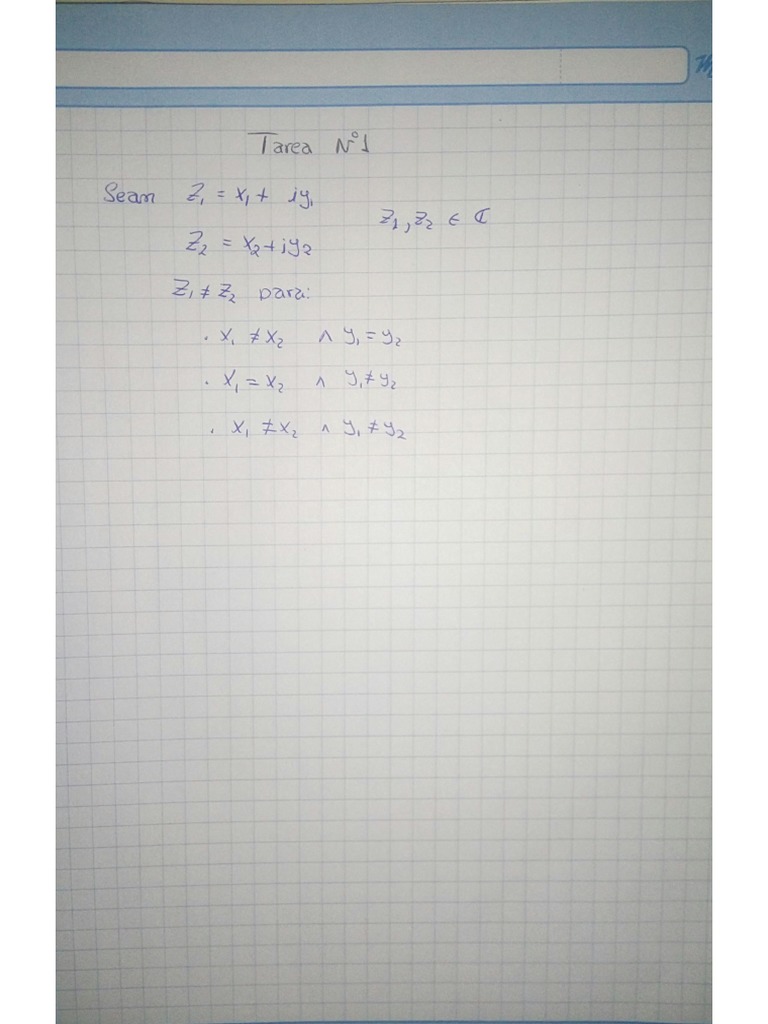 Tarea N°1
Sean Z₁ = x₁ + iy₁
z₁, z₂ ∈ ℂ
Z₂ = x₂ + iy₂
Z₁ ≠ Z₂ para:
. x₁ ≠ x₂ ∧ y₁ = y₂
. x₁ = x₂ ∧ y₁ ≠ y₂
. x₁ ≠ x₂ ∧ y₁ ≠ y₂